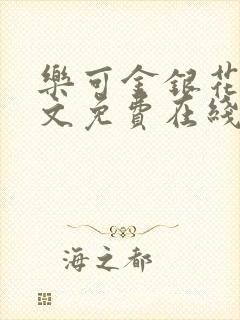 樂可金銀花
文免費在綫
海之都